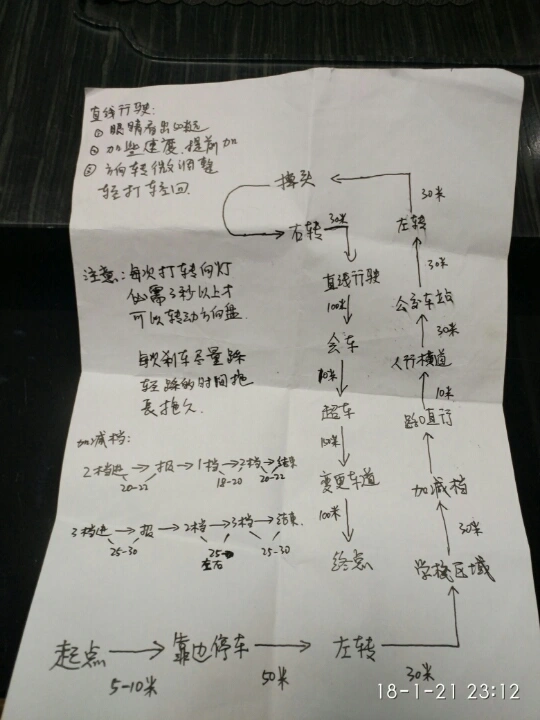 直线行驶:
① 眼睛看出
② 加些速度,提前加
③ 方向转微调整
轻打轻回
注意:每次打转向灯
必需3秒以上才
可以转动方向盘.
每次刹车尽量踩
轻踩的时间拖
长拖久.
加减档:
2档进 → 报 → 1档 → 2档 → 结束
20-22 18-20 20-22
3档进 → 报 → 2档 → 3档 → 结束.
25-30 25 25-30
左右
起点 → 靠边停车 → 左转 →
5-10米 50米 30米
学校区域
30米
加减档
路口直行
10米
人行横道
30米
公交车站
30米
左转
30米
掉头
右转
30米
直线行驶
100米
会车
超车
变更车道
100米
终点
18-1-21 23:12